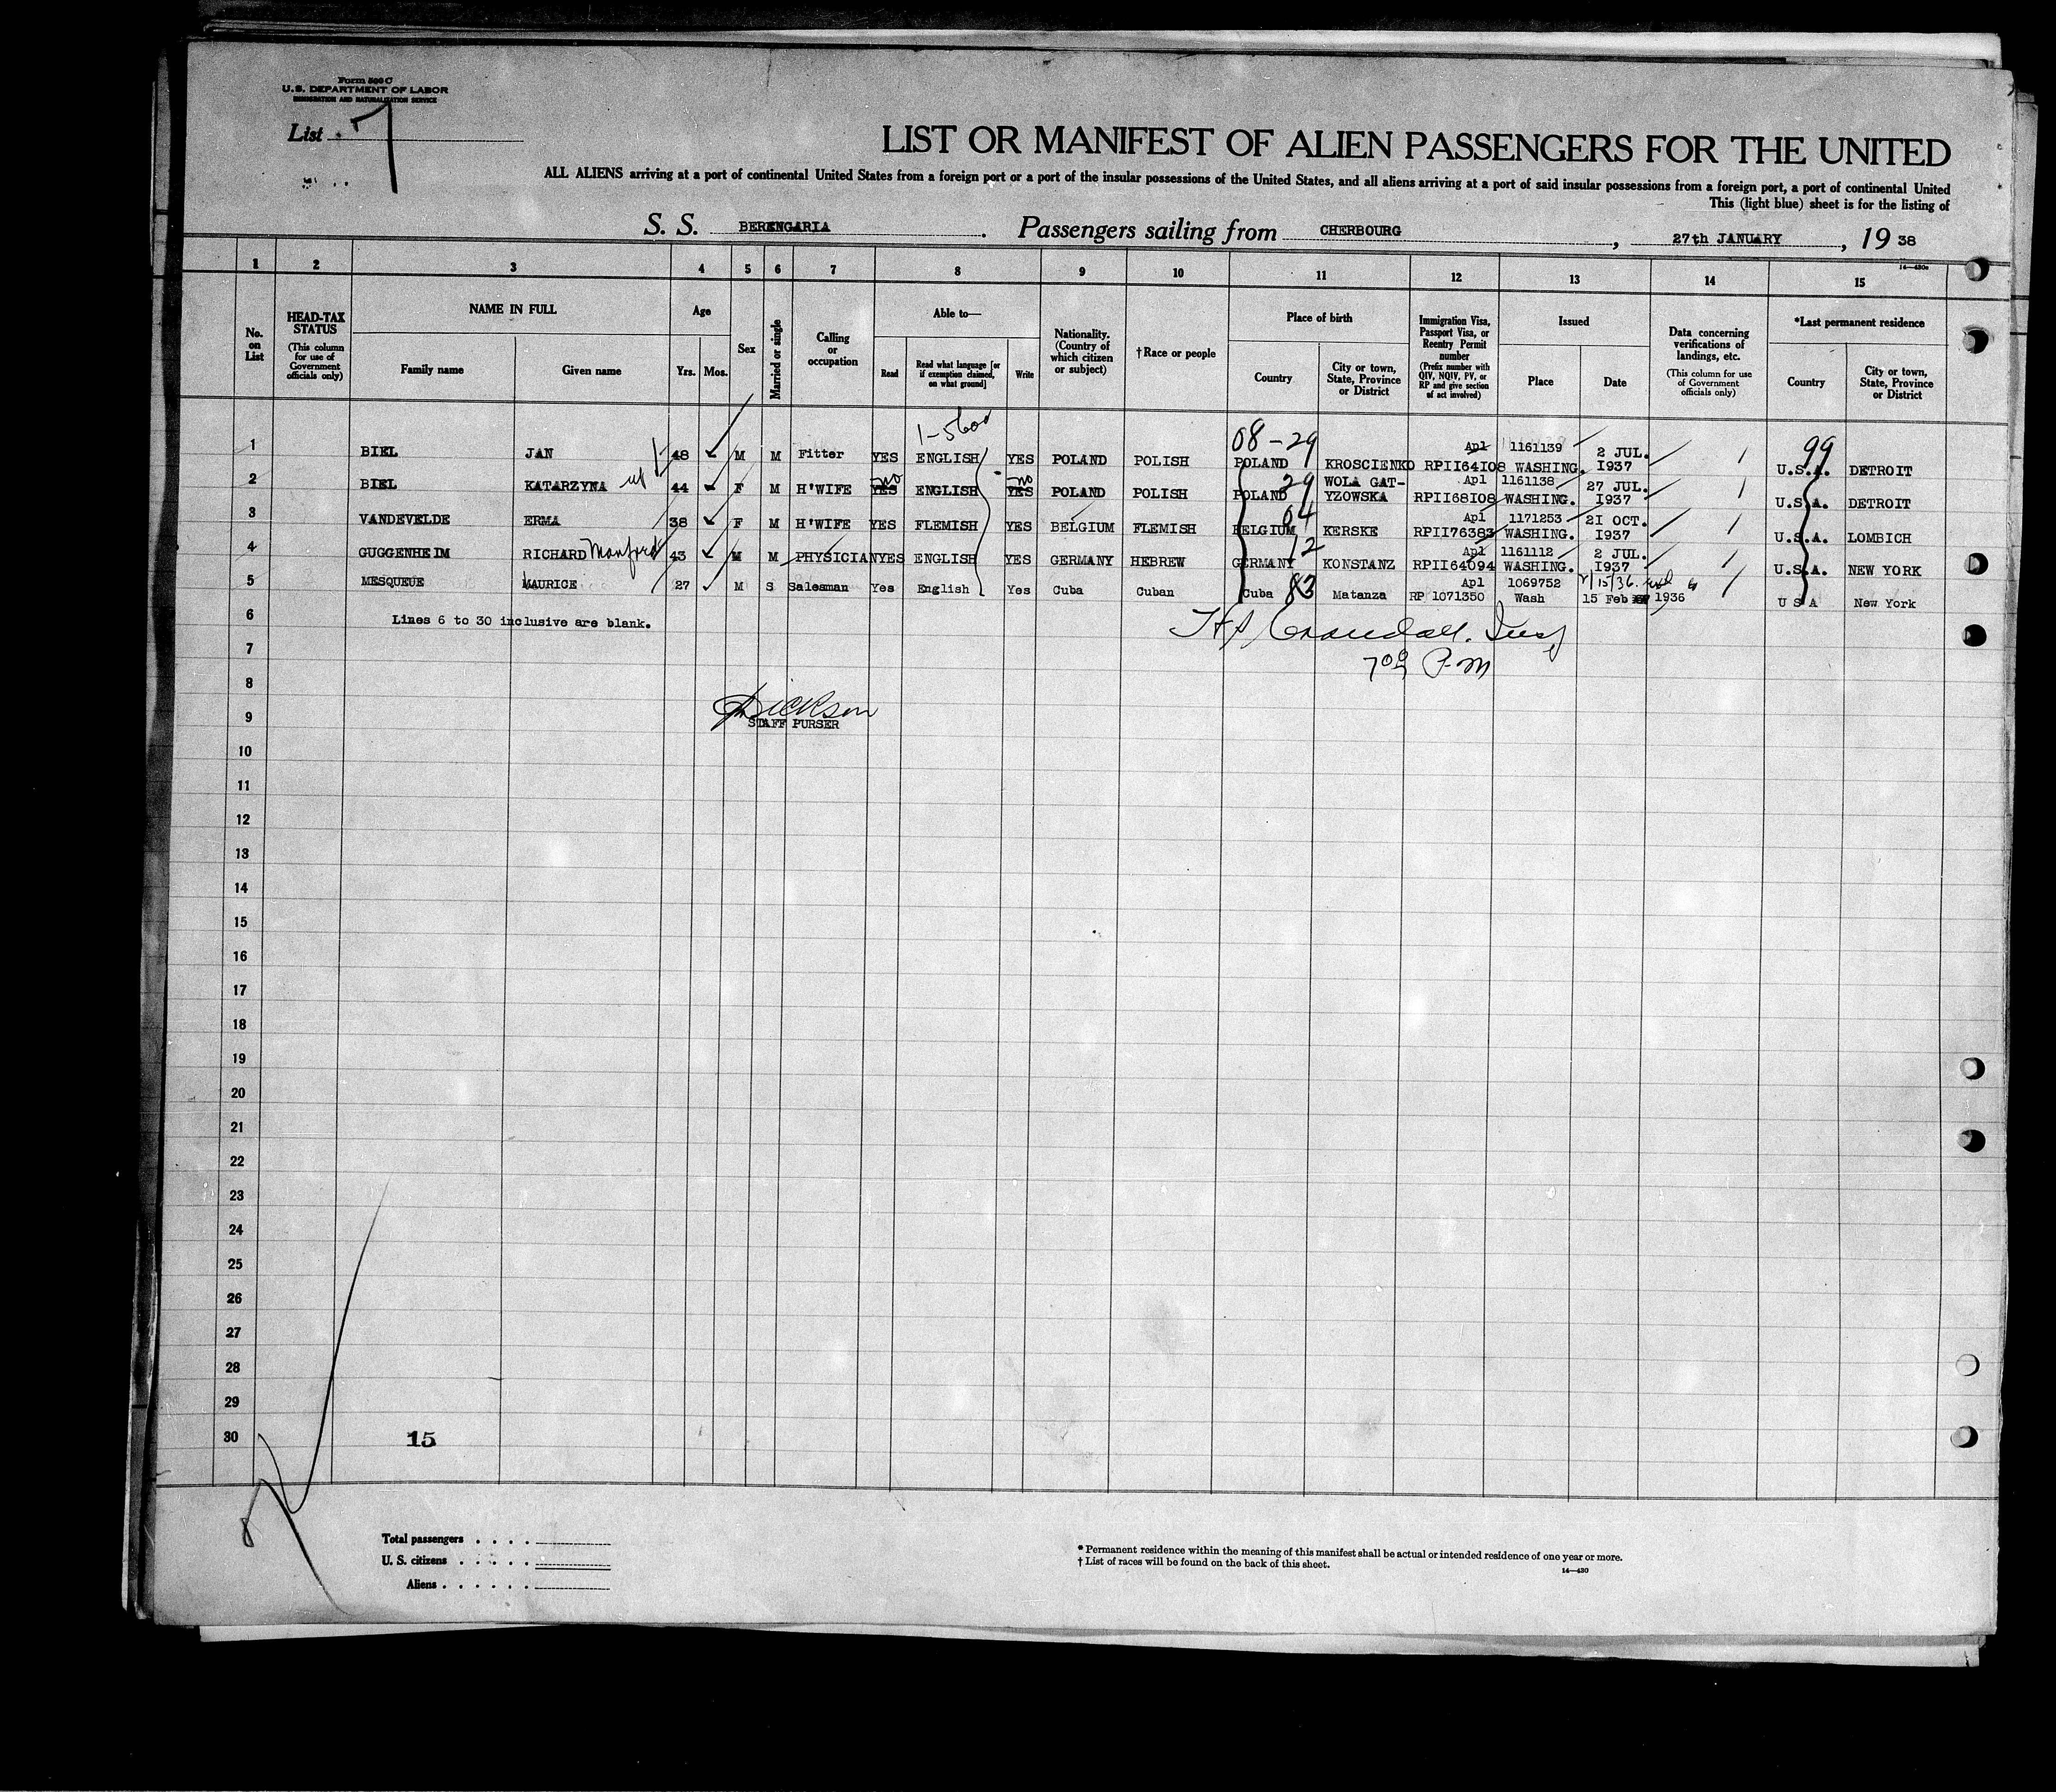 Form 500 C
U. S. DEPARTMENT OF LABOR
IMMIGRATION AND NATURALIZATION SERVICE
List 7
LIST OR MANIFEST OF ALIEN PASSENGERS FOR THE UNITED
ALL ALIENS arriving at a port of continental United States from a foreign port or a port of the insular possessions of the United States, and all aliens arriving at a port of said insular possessions from a foreign port, a port of continental United
This (light blue) sheet is for the listing of
S. S. BERENGARIA. Passengers sailing from CHERBOURG, 27th JANUARY, 19 38
14—430a
1 2 3 4 5 6 7 8 9 10 11 12 13 14 15
No. on List
HEAD-TAX STATUS (This column for use of Government officials only)
NAME IN FULL
Family name Given name
Age
Yrs. Mos.
Sex
Married or single
Calling or occupation
Able to—
Read Read what language [or if exemption claimed, on what ground] Write
Nationality. (Country of which citizen or subject)
†Race or people
Place of birth
Country City or town, State, Province or District
Immigration Visa, Passport Visa, or Reentry Permit number (Prefix number with QIV, NQIV, PV, or RP and give section of act involved)
Issued
Place Date
Data concerning verifications of landings, etc. (This column for use of Government officials only)
*Last permanent residence
Country City or town, State, Province or District
08-29 99
Apl 1161139
1 BIEL JAN 48 M M Fitter YES ENGLISH YES POLAND POLISH POLAND KROSCIENKO RPII64I08 WASHING. 2 JUL. I937 U.S.A. DETROIT
no no 29 Apl 1161138
2 BIEL KATARZYNA 44 F M H'WIFE YES ENGLISH YES POLAND POLISH POLAND WOLA GAT-YZOWSKA RPII68I08 WASHING. 27 JUL. I937 U.S.A. DETROIT
04 Apl 1171253
3 VANDEVELDE ERMA 38 F M H'WIFE YES FLEMISH YES BELGIUM FLEMISH BELGIUM KERSKE RPII76383 WASHING. 2I OCT. I937 U.S.A. LOMBICH
12 Apl 1161112
4 GUGGENHEIM RICHARD Manford 43 M M PHYSICIAN YES ENGLISH YES GERMANY HEBREW GERMANY KONSTANZ RPII64094 WASHING. 2 JUL. I937 U.S.A. NEW YORK
83 Apl 1069752 2/15/36
5 MESQUEUE MAURICE 27 M S Salesman Yes English Yes Cuba Cuban Cuba Matanza RP 1071350 Wash 15 Feb 1936 U S A New York
6 Lines 6 to 30 inclusive are blank.
Crandall. Insp
7
7 00 P.M
8
Dickson
9 STAFF PURSER
10
11
12
13
14
15
16
17
18
19
20
21
22
23
24
25
26
27
28
29
30 15
Total passengers . . . .
U. S. citizens . . . . .
Aliens . . . . . .
* Permanent residence within the meaning of this manifest shall be actual or intended residence of one year or more.
† List of races will be found on the back of this sheet.
14—430